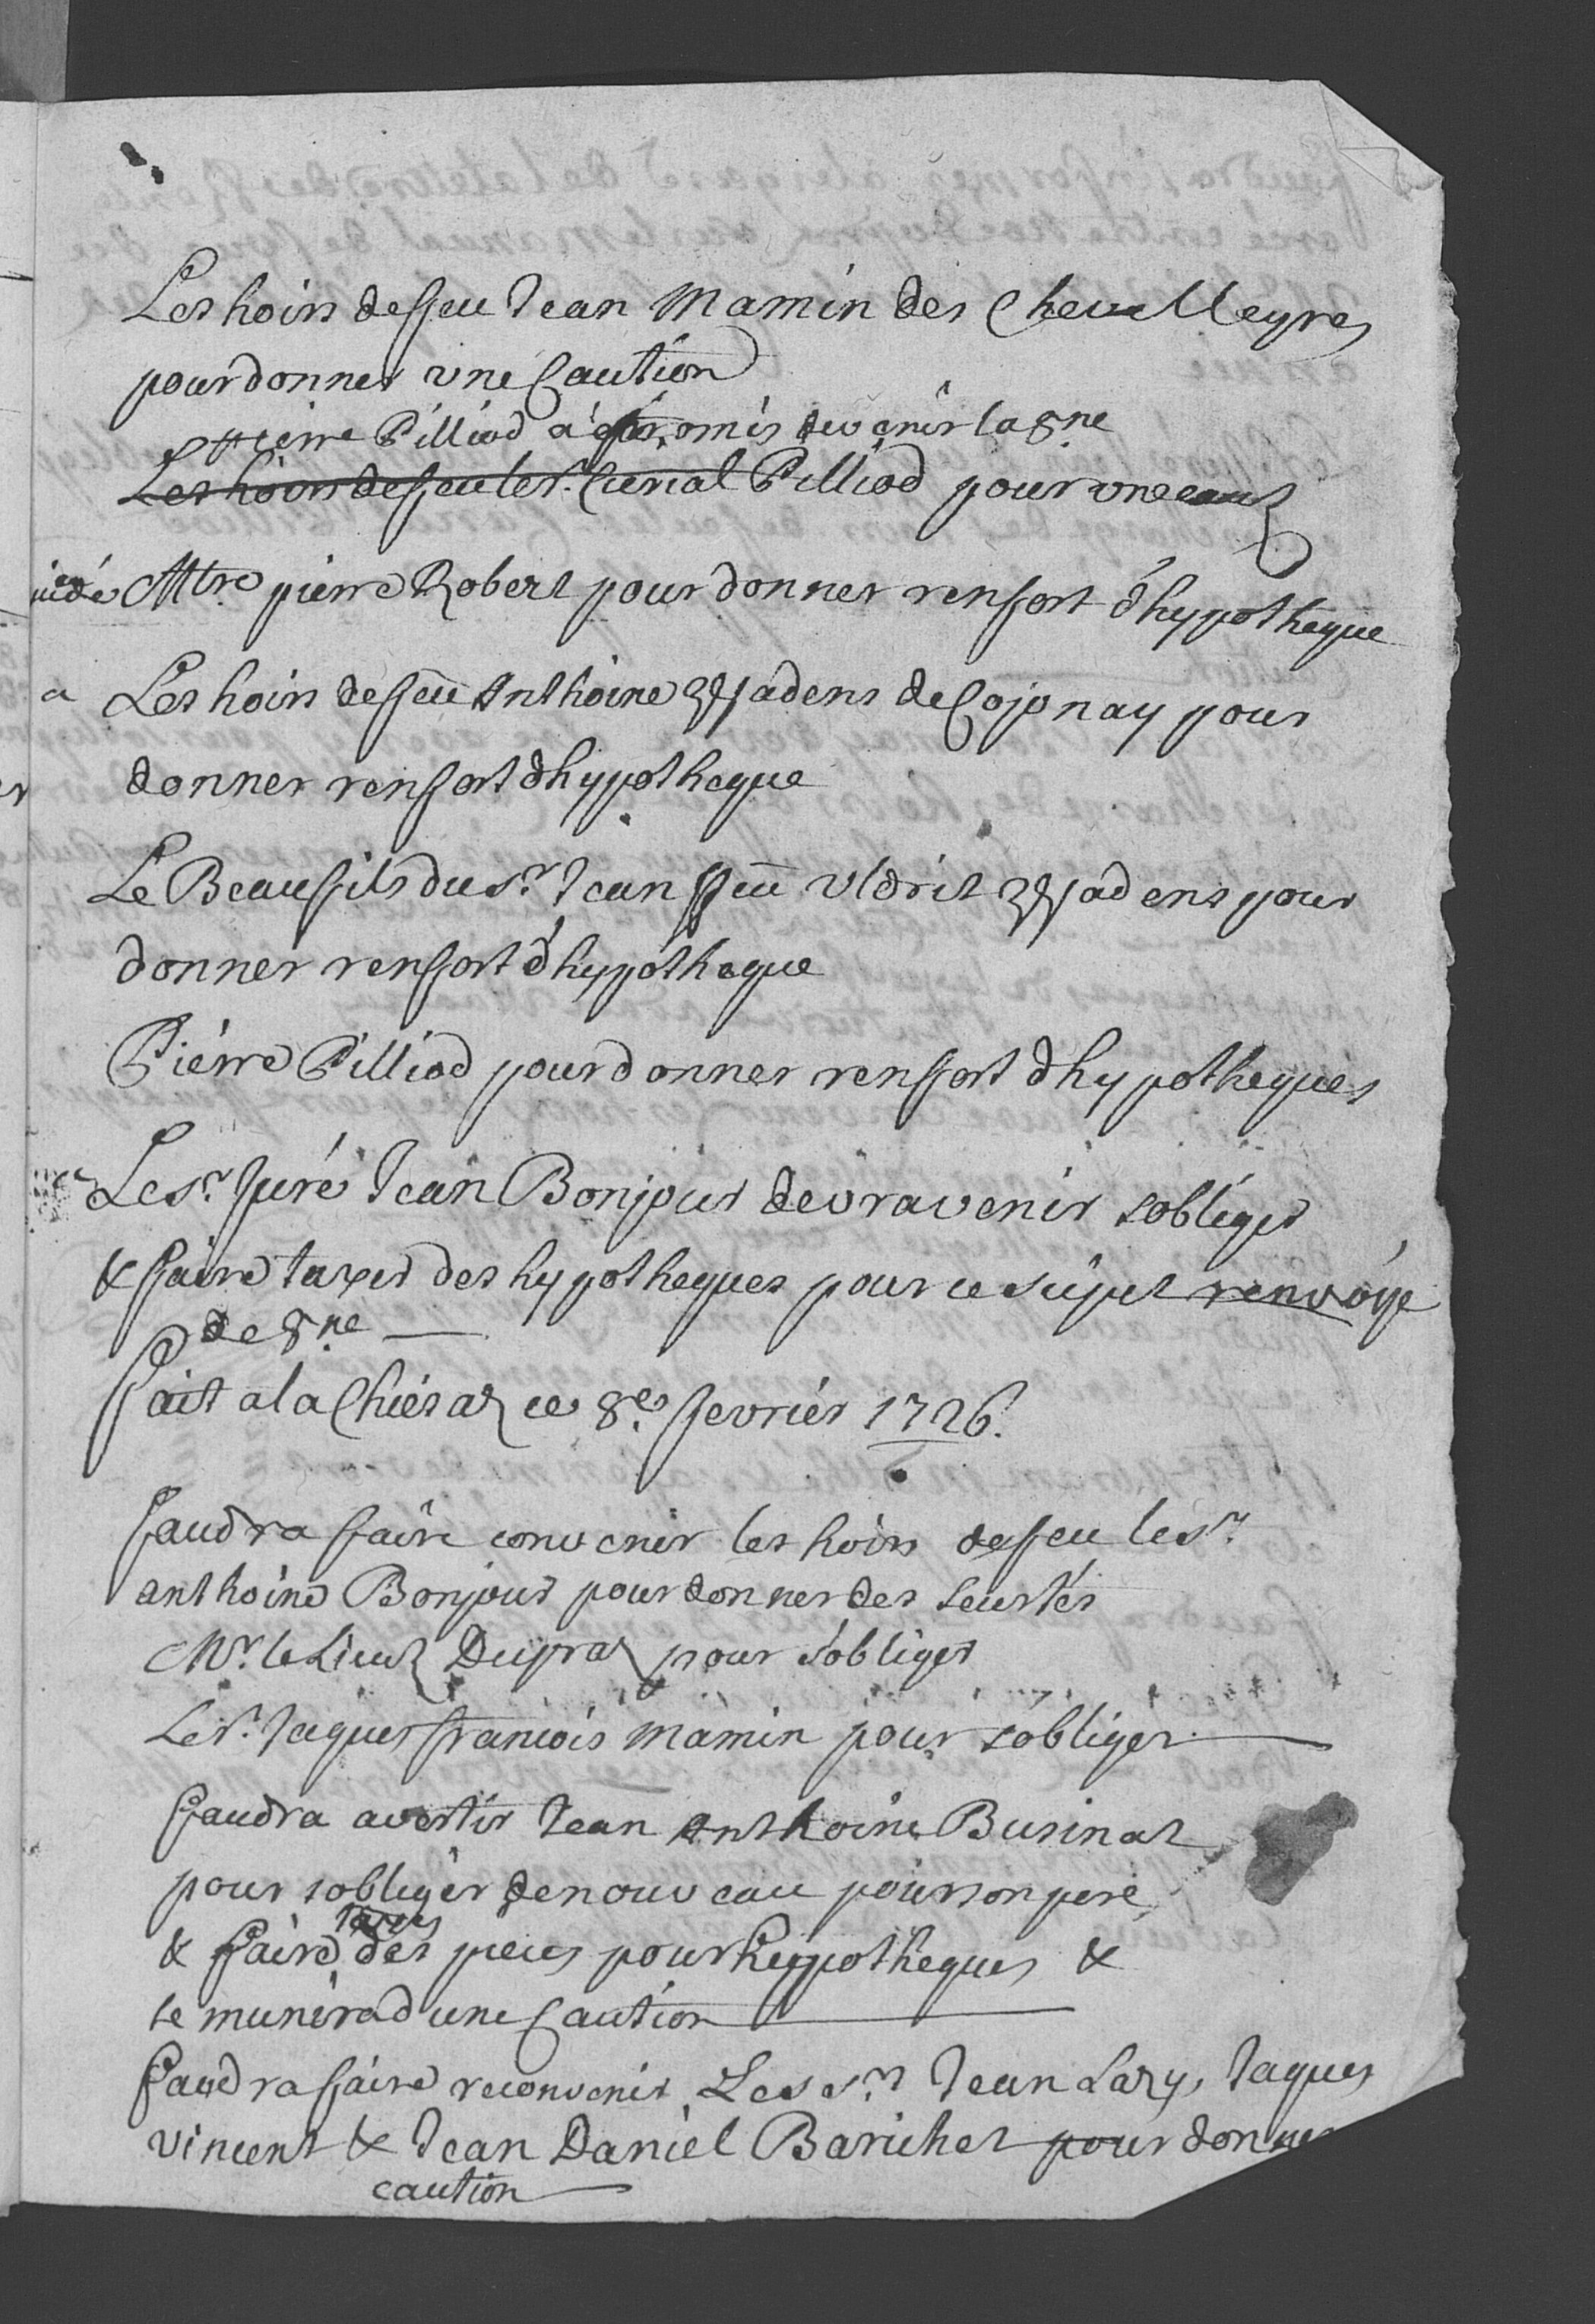 Les hoirs de ffeu Jean Mamin des Chevalleyres
pour donner vne Caution
pierre Pilliod à promis de venir la 8ne
Les hoirs de feu le sr. Curial Pilliod pour vne caut
Mtre pierre Robert pour donner renffort d'hypotheque
a Les hoirs de ffeu Anthoine Espadens de Cojonay pour
donner renffort dhypotheque
Le Beaufils du sr. Jean ffeu Vldrit Espadens pour
donner renffort d'hypotheque
Pierre Pilliod pour donner renffort dhypotheques
Le sr. Juré Jean Bonjour devra venir sobliger
& ffaire taxer des hypotheques pour ce sujet renvoÿe
de 8ne
ffait a la Chiésaz ce 8e. ffevrier 1726.
ffaudra ffaire convenir les hoirs de feu le sr.
anthoine Bonjour pour donner des seurtés
Mr. le Lieut Dupraz pour s'obliger
Le sr. Jaques francois Mamin pour s'obliger
ffaudra avertir Jean Anthoine Businat
pour sobliger de nouveau pour son pere
taxer
& ffaire des pieces pour hypotheques &
se munira dune Caution
ffaudra ffaire reconvenir Les srs Jean Lazy, Jaques
vincent & Jean Daniel Barichet pour donner
caution